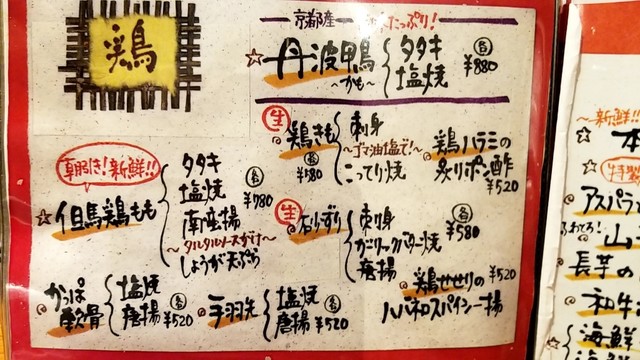 鶏
京都産
たっぷり!
☆丹波鴨
〜かも〜
タタキ
塩焼
各¥880
生
鶏きも
各¥580
刺身
〜ゴマ油塩で!〜
こってり焼
鶏ハラミの
炙りポン酢
¥520
朝引き!新鮮!!
☆但馬鶏もも
タタキ
塩焼
南蛮揚
〜タルタルソースがけ〜
しょうが天ぷら
各¥780
生
砂ずり
刺身
ガーリックバター焼
唐揚
各¥580
かっぱ
軟骨
塩焼
唐揚
各¥520
手羽先
塩焼
唐揚
各¥520
鶏せせりの
ハバネロスパイシー揚
¥520
〜新鮮!!
☆本
☆特製
アスパラ
山
長芋の
和牛
海鮮
海鮮